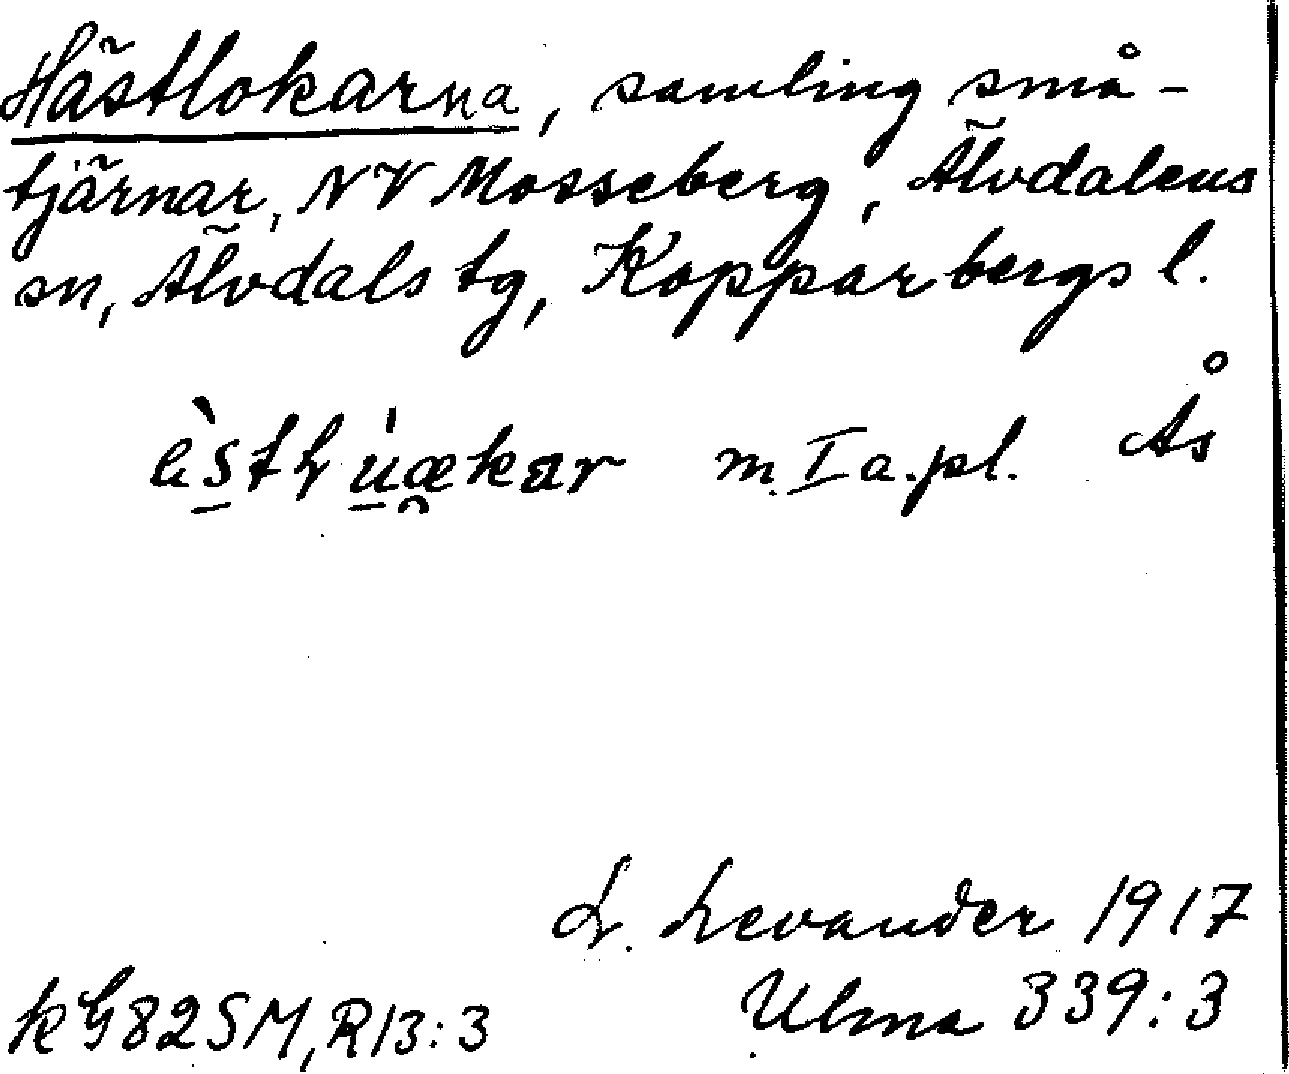 Hästlokarna, samling små-
tjärnar, NV Mosseberg, Älvdalens
sn, Älvdals tg, Kopparbergs l.
m. I a. pl. Ås
L. Levander 1917
Ulma 339:3
k G82SM, R13:3